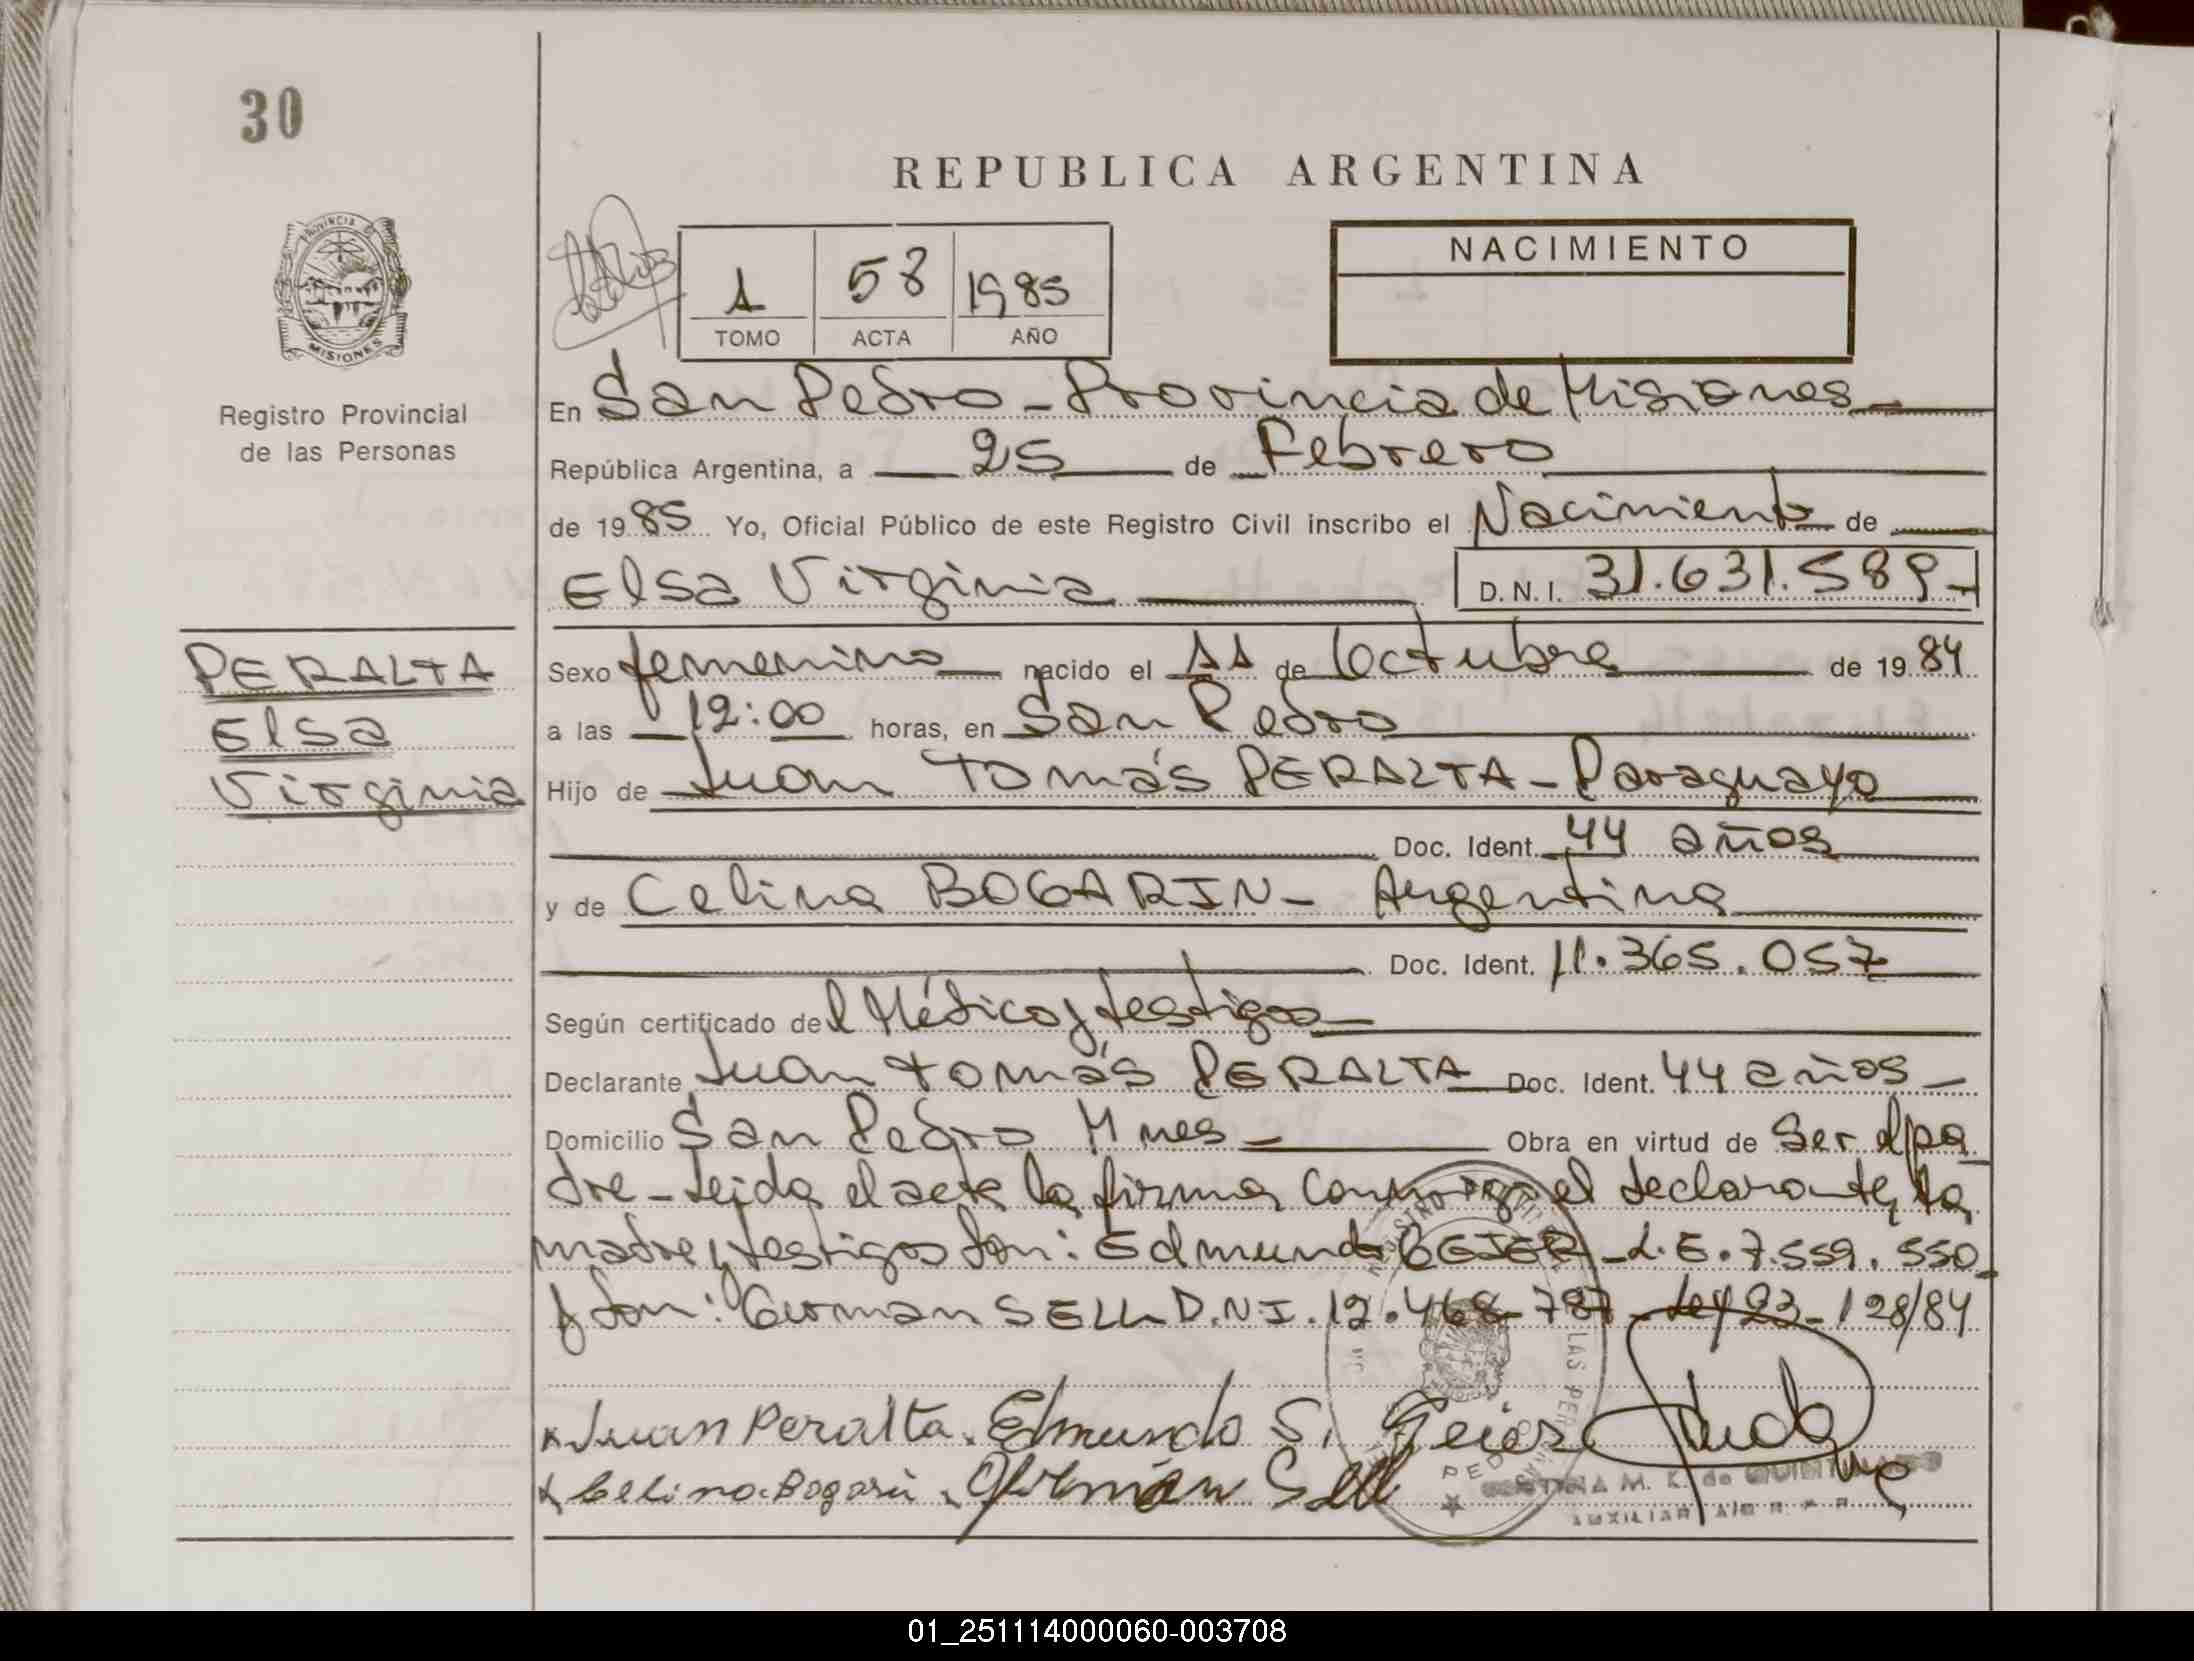 30
REPUBLICA ARGENTINA
PROVINCIA DE
MISIONES
Registro Provincial
de las Personas
1 58 1985
TOMO ACTA AÑO
NACIMIENTO
En San Pedro - Provincia de Misiones
República Argentina, a 25 de Febrero
de 1985 Yo, Oficial Público de este Registro Civil inscribo el Nacimiento de
Elsa Virginia D. N. I. 31.631.589-
PERALTA
Elsa
Virginia
Sexo femenino nacido el 11 de Octubre de 1984
a las 12:00 horas, en San Pedro
Hijo de Juan Tomás PERALTA - Paraguayo
Doc. Ident. 44 años
y de Celina BOGARIN - Argentina
Doc. Ident. 11.365.057
Según certificado del Médico y testigos
Declarante Juan Tomás PERALTA Doc. Ident. 44 años
Domicilio San Pedro Mnes - Obra en virtud de Ser el pa
dre - Leida el acta la firma conmigo el declarante, la
madre y testigos Son: Edmundo L.E. 7.559.550
y Son: German SELL D.N.I. 12.468-787 - Ley 23-128/84
Juan Peralta. Edmundo S.
Celina Bogarin German Sell
PEDRO
M. K. de
AUXILIAR
01_251114000060-003708